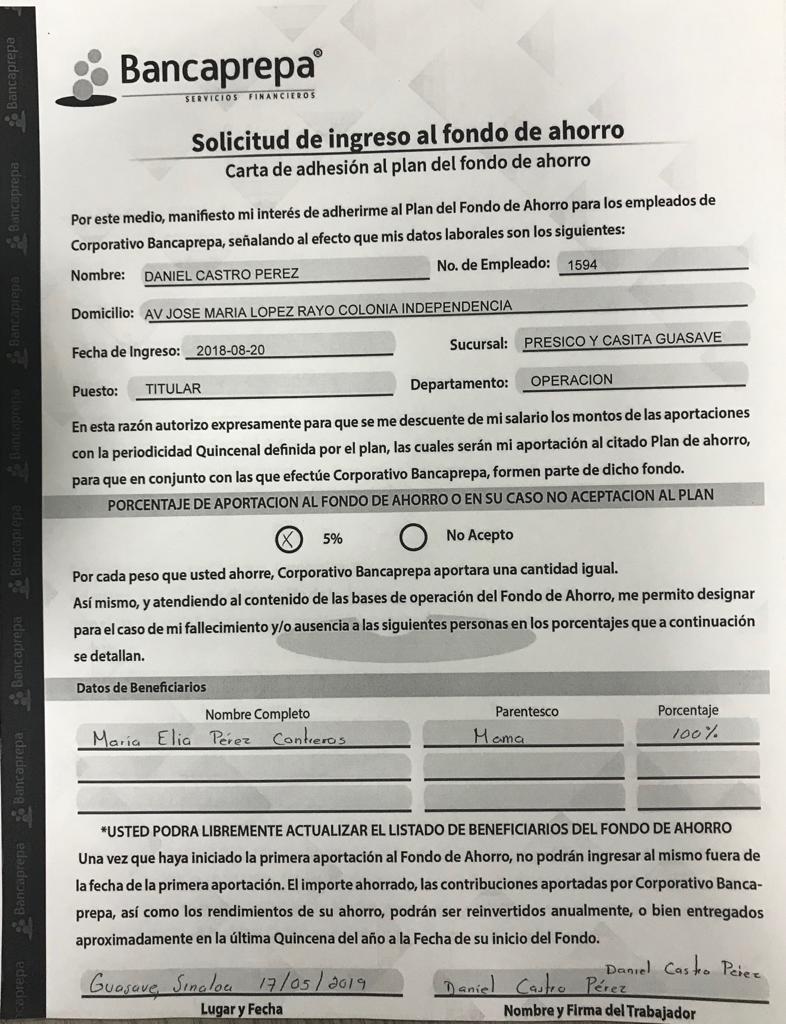 Bancaprepa®
SERVICIOS FINANCIEROS
Solicitud de ingreso al fondo de ahorro
Carta de adhesión al plan del fondo de ahorro
Por este medio, manifiesto mi interés de adherirme al Plan del Fondo de Ahorro para los empleados de
Corporativo Bancaprepa, señalando al efecto que mis datos laborales son los siguientes:
Nombre: DANIEL CASTRO PEREZ No. de Empleado: 1594
Domicilio: AV JOSE MARIA LOPEZ RAYO COLONIA INDEPENDENCIA
Fecha de Ingreso: 2018-08-20 Sucursal: PRESICO Y CASITA GUASAVE
Puesto: TITULAR Departamento: OPERACION
En esta razón autorizo expresamente para que se me descuente de mi salario los montos de las aportaciones
con la periodicidad Quincenal definida por el plan, las cuales serán mi aportación al citado Plan de ahorro,
para que en conjunto con las que efectúe Corporativo Bancaprepa, formen parte de dicho fondo.
PORCENTAJE DE APORTACION AL FONDO DE AHORRO O EN SU CASO NO ACEPTACION AL PLAN
X 5% No Acepto
Por cada peso que usted ahorre, Corporativo Bancaprepa aportara una cantidad igual.
Así mismo, y atendiendo al contenido de las bases de operación del Fondo de Ahorro, me permito designar
para el caso de mi fallecimiento y/o ausencia a las siguientes personas en los porcentajes que a continuación
se detallan.
Datos de Beneficiarios
Nombre Completo Parentesco Porcentaje
María Elia Pérez Contreras Mama 100%
*USTED PODRA LIBREMENTE ACTUALIZAR EL LISTADO DE BENEFICIARIOS DEL FONDO DE AHORRO
Una vez que haya iniciado la primera aportación al Fondo de Ahorro, no podrán ingresar al mismo fuera de
la fecha de la primera aportación. El importe ahorrado, las contribuciones aportadas por Corporativo Banca-
prepa, así como los rendimientos de su ahorro, podrán ser reinvertidos anualmente, o bien entregados
aproximadamente en la última Quincena del año a la Fecha de su inicio del Fondo.
Daniel Castro Pérez
Guasave, Sinaloa 17/05/2019 Daniel Castro Pérez
Lugar y Fecha Nombre y Firma del Trabajador
Bancaprepa
Bancaprepa
Bancaprepa
Bancaprepa
Bancaprepa
Bancaprepa
Bancaprepa
Bancaprepa